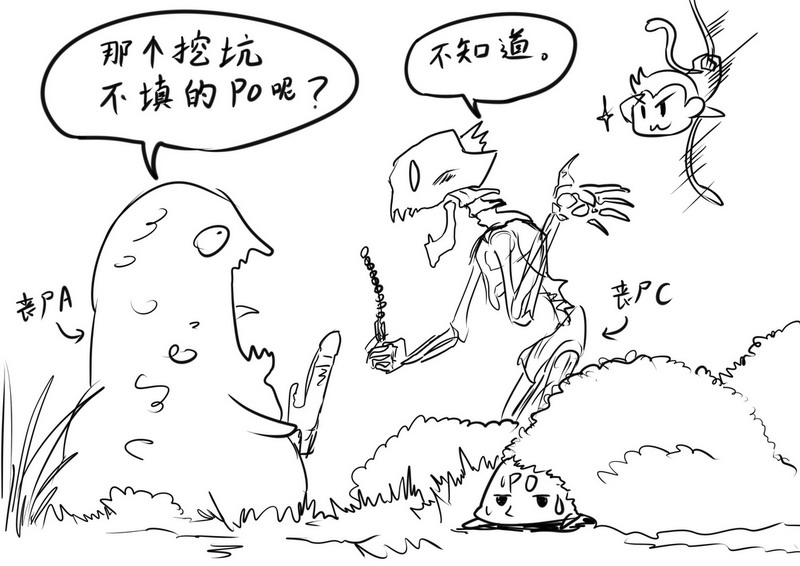 那个挖坑
不填的PO呢？
不知道。
丧尸A
丧尸C
PO